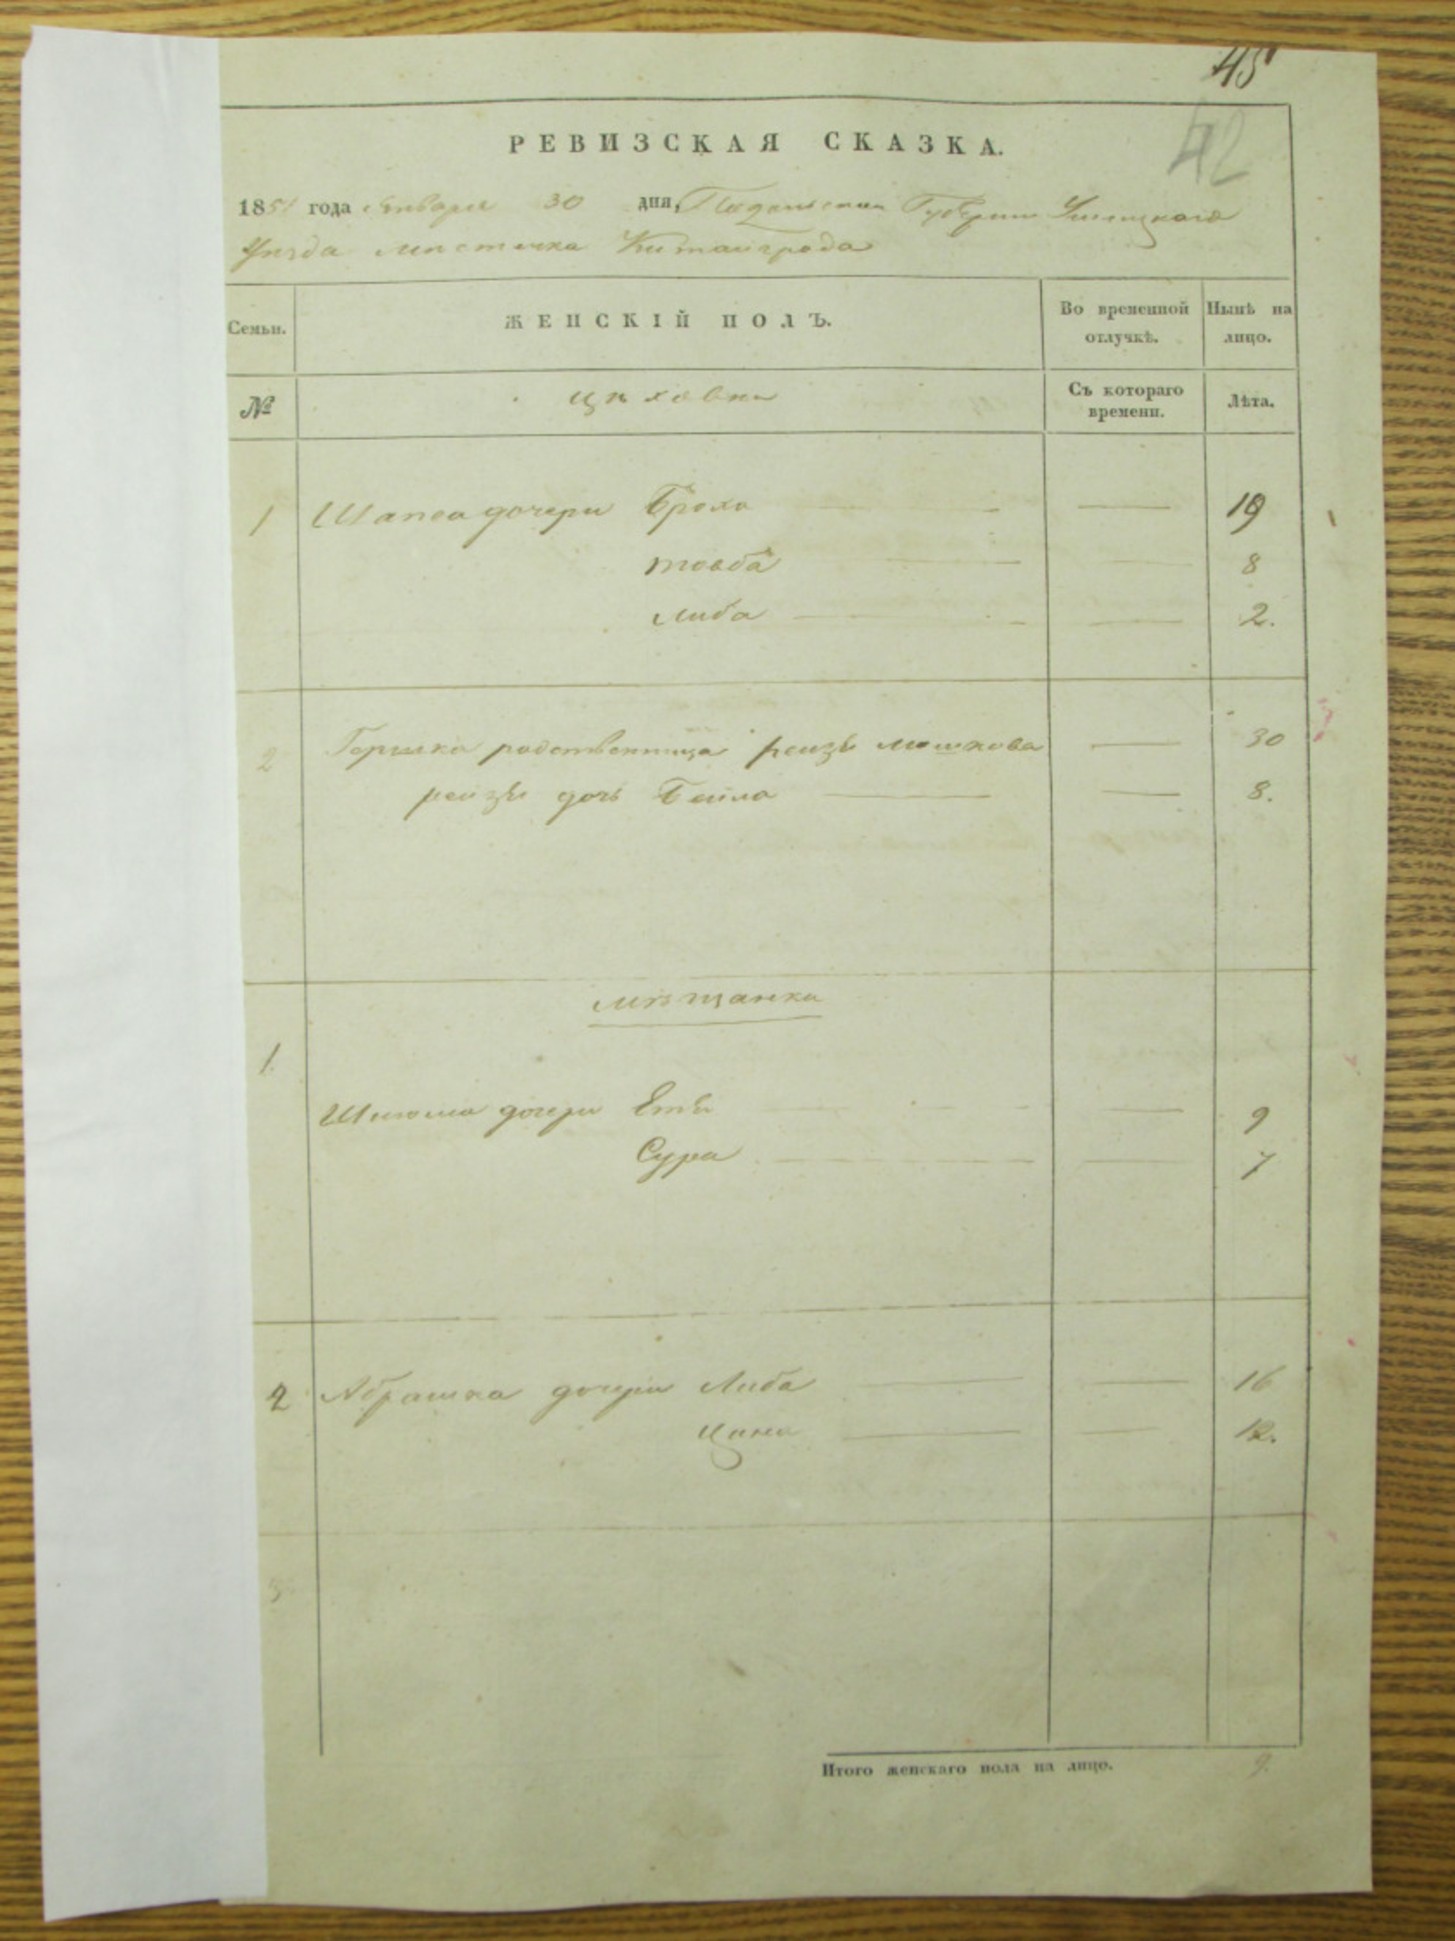 45
42
РЕВИЗСКАЯ СКАЗКА.
1851 года Января 30 дня, Подольской Губернии Ушицкаго
Уѣзда мѣстечка Китайгрода
Семьи. ЖЕНСКІЙ ПОЛЪ. Во временной отлучкѣ. Нынѣ на лицо.
№ цѣховки Съ котораго времени. Лѣта.
1 Шапса дочери Броха — — 19
товба — — 8
Либа — — 2.
2 Гершка родственница рейзя мошкова — 30
рейзи дочь Бейла — — 8.
мѣщанки
1.
Шлиома дочери Етя — — 9
Сура — — 7
2 Абрашка дочери Либа — — 16
Цина — — 12.
3
Итого женскаго пола на лицо. 9.